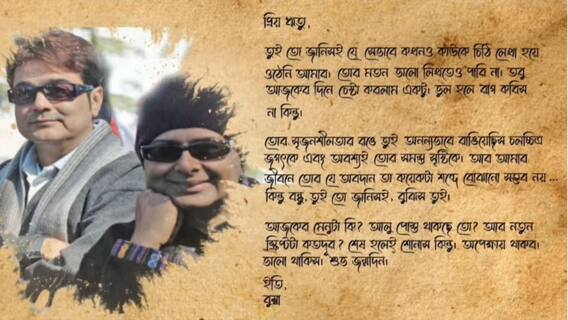 প্রিয় ঋতু,
তুই তো জানিসই যে সেভাবে কখনও কাউকে চিঠি লেখা হয়ে
ওঠেনি আমার। তোর মতন ভালো লিখতেও পারি না। তবু
আজকের দিনে চেষ্টা করলাম একটু। ভুল হলে রাগ করিস
না কিন্তু।
তোর সৃজনশীলতার রঙে তুই অনন্যভাবে রাঙিয়েছিস চলচ্চিত্র
জগৎকে এবং অবশ্যই তোর সমস্ত সৃষ্টিকে। আর আমার
জীবনে তোর যে অবদান তা কয়েকটা শব্দে বোঝানো সম্ভব নয়...
কিন্তু বন্ধু, তুই তো জানিসই, বুঝিস তুই।
আজকের মেনুটা কি? আলু পোস্ত থাকছে তো? আর নতুন
স্ক্রিপ্টটা কতদূর? শেষ হলেই শোনাস কিন্তু। অপেক্ষায় থাকব।
ভালো থাকিস। শুভ জন্মদিন।
ইতি,
বুম্বা